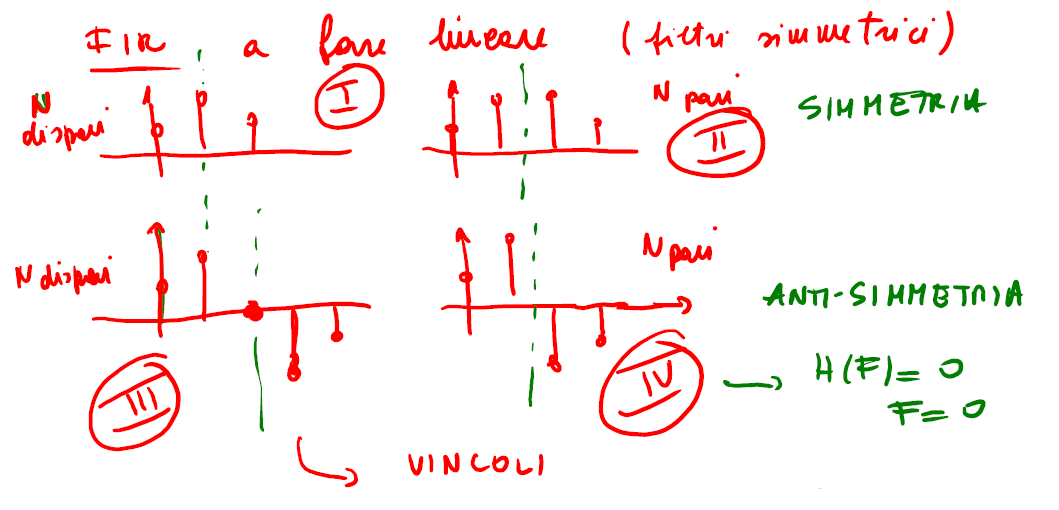 FIR a fase lineare (filtri simmetrici)
N dispari
I
N pari
II
SIMMETRIA
N dispari
III
N pari
IV
ANTI-SIMMETRIA
H(F)= 0
F= 0
VINCOLI